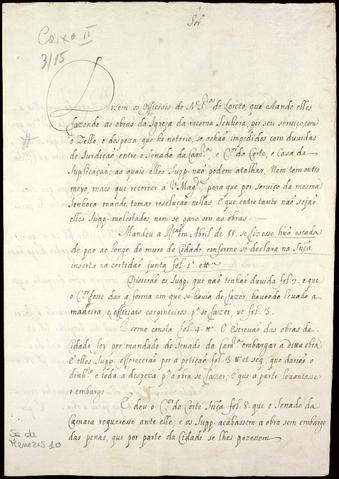 Caixa II
3/15
Sõr
Dizem os Officiaes de N. Sra de Loreto, que estando elles
fazendo as obras da Igreja da mesma Senhora, por seu serviço, com
o Zello, e despeza que hé notorio, se achão impedidos com duvidas
de Jurdição, entre o Senado da Camra, e Cor. do Corte, e Casa da
Supplicação, as quais elles Suppes não podem atalhar, Nem tem outro
meyo mais que recorrer a V. Magde, para que por serviço da mesma
Senhora mande tomar resolução nellas E que entretanto não sejão
elles Suppes molestados, nem se parem as obras
Mandou a em Abril de 55. se fizesse huã escada
de pao ao longo do muro da Cidade, conforme se declara na
inserta na certidão junta fol. 1. etc.
Disserão os Suppes que não tinhão duvida fol. 2, e que
o fosse dar a forma em que se havia de fazer, havendo levado a
madeira, e officiaes carpinteiros pa se fazer, ut fol. 3.
Como consta fol. 4 O Escrivão das obras da
Cidade foy por mandado do Senado da Camra embargar a dita obra
E elles Suppes offerecerão por a petição fol. 5 et seq. que darião o
dinhro, e toda a despeza pa a obra se fazer; E que a parte levantasse
o embargo.
E deu o Cor. do Corte fol. 8. que o Senado da
Camara requeresse ante elle; e os Suppes acabassem a obra sem embargo
das penas, que por parte da Cidade se lhes pozessem
Sá de
Menezes 10